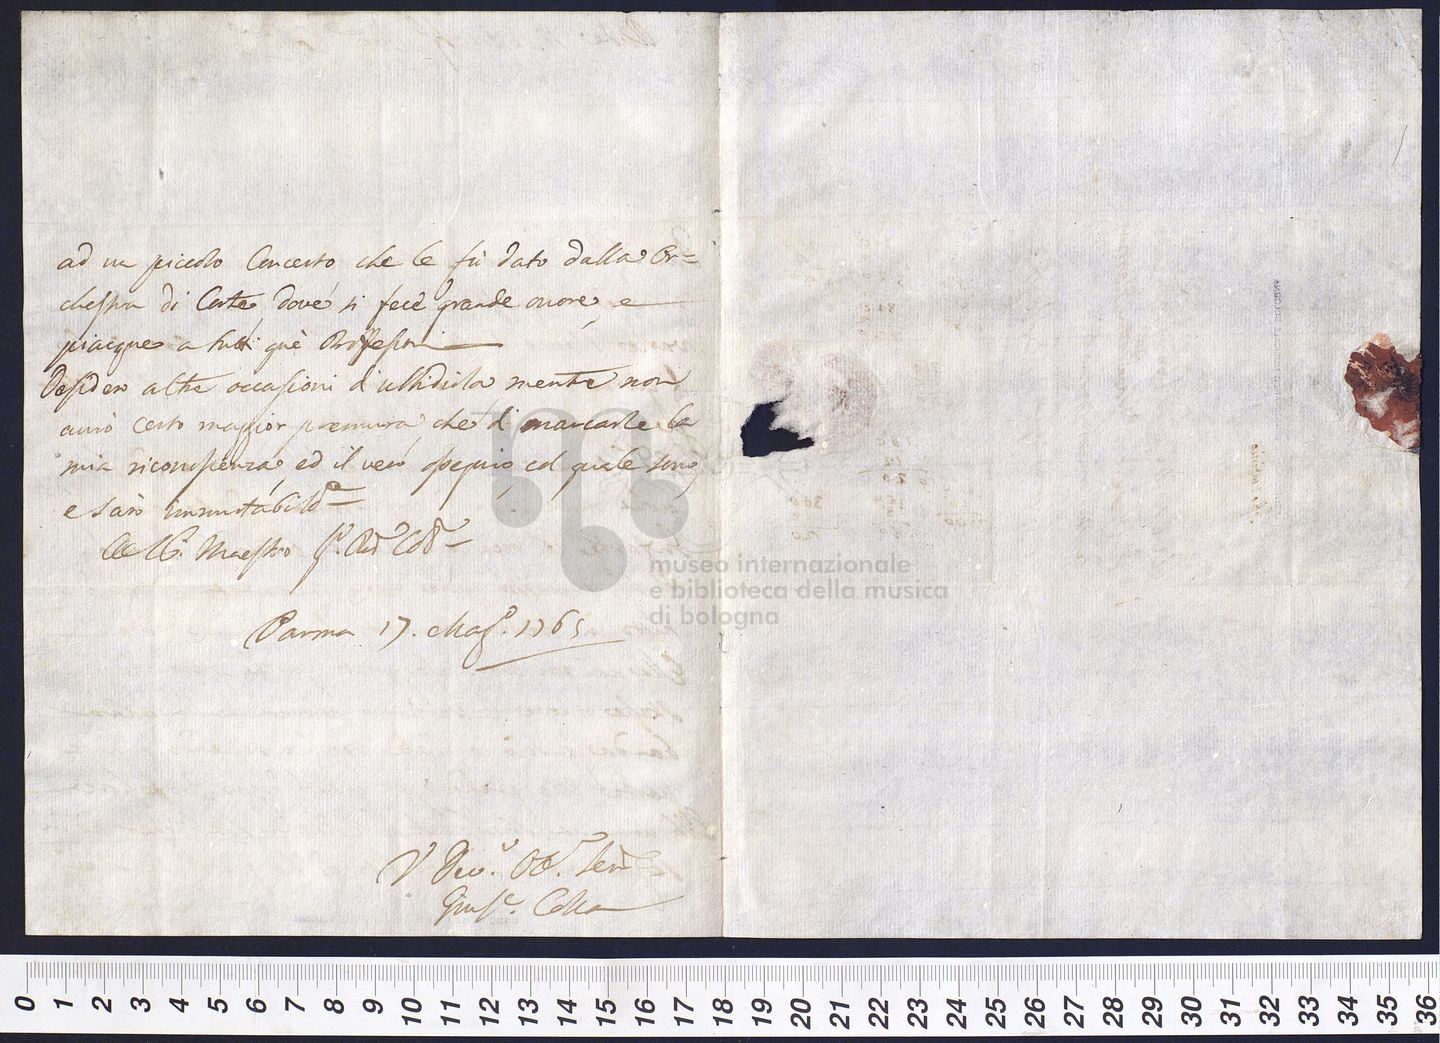 ad un picciolo Concerto che le fù dato dalla Or=
chestra di Corte, dove si fece grande onore, e
piacque a tutti què Professori
Desidero altre occasioni d'ubbidirla mentre non
avrò certo maggior premura che di marcarle la
mia riconoscenza, ed il vero ossequio, col quale sono,
e sarò immutabilme
De V. R. Maestro
Parma 17. Mag.o 1765
V Dev.o Ob. Ser
Gius.e Colla
museo internazionale
e biblioteca della musica
di bologna
0 1 2 3 4 5 6 7 8 9 10 11 12 13 14 15 16 17 18 19 20 21 22 23 24 25 26 27 28 29 30 31 32 33 34 35 36